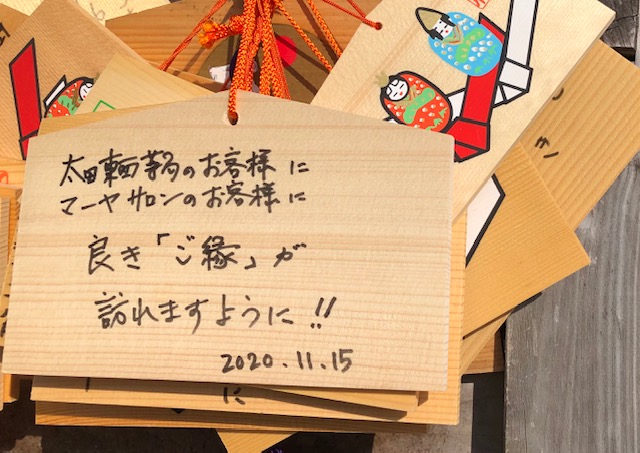 太田東西薬局のお客様に
マーヤサロンのお客様に
良き「ご縁」が
訪れますように!!
2020.11.15
に